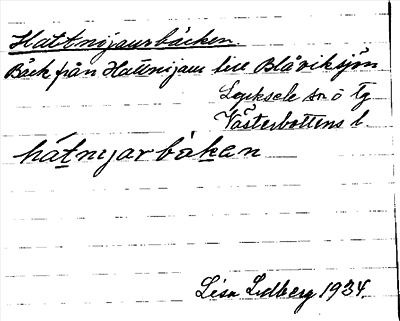 Hattnijaurbäcken.
Bäck från Hattnijaur till Blåviksjön
Lycksele sn o tg
Västerbottens l.
hátnijarbäkan
Lisa Lidberg 1934.